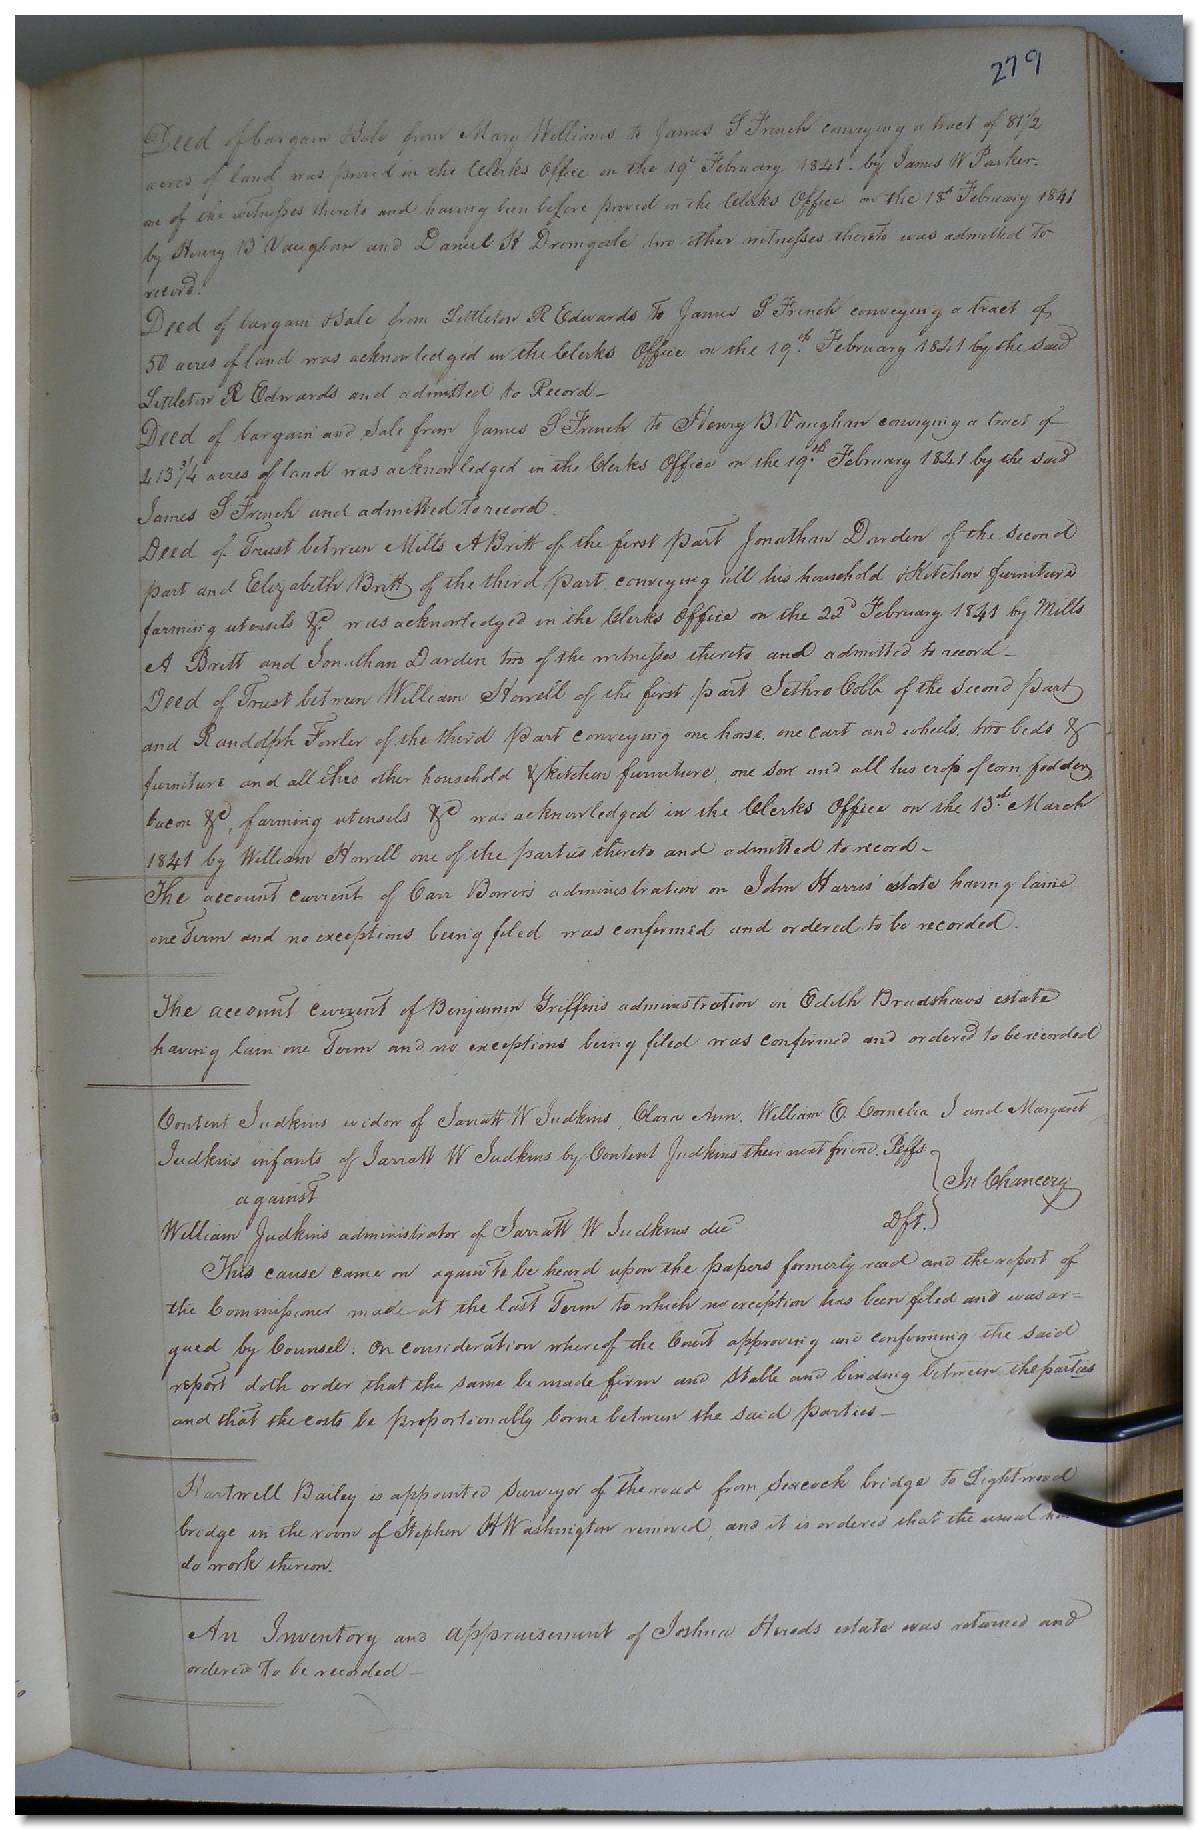 279
Deed of bargain Sale from Mary Williams to James S French conveying a tract of 81 1/2
acres of land was proved in the Clerks Office on the 19th February 1841 by James W Parker
one of the witnesses thereto and having been before proved in the Clerks Office on the 18th February 1841
by Henry B Vaughan and Daniel H Dromgoole two other witnesses thereto was admitted to
record.
Deed of bargain Sale from Littleton R Edwards to James S French conveying a tract of
50 acres of land was acknowledged in the Clerks Office on the 19th February 1841 by the said
Littleton R Edwards and admitted to Record
Deed of bargain and Sale from James S French to Henry B Vaughan conveying a tract of
413 3/4 acres of land was acknowledged in the Clerks Office on the 19th February 1841 by the said
James S French and admitted to record.
Deed of Trust between Mills A Britt of the first part Jonathan Darden of the second
part and Elizabeth Britt of the third part conveying all his household & Kitchen furniture
farming utensils &c was acknowledged in the Clerks Office on the 22d February 1841 by Mills
A Britt and Jonathan Darden two of the witnesses thereto and admitted to record
Deed of Trust between William Howell of the first part Jethro Cobb of the Second part
and Randolph Fowler of the third part conveying one horse, one cart and wheels, two beds &
furniture and all his other household & kitchen furniture, one sow and all his crop of corn, fodder,
bacon &c, farming utensils &c was acknowledged in the Clerks Office on the 13th March
1841 by William Howell one of the parties thereto and admitted to record
The account current of Carr Bowers administration on John Harris' estate having laine
one Term and no exceptions being filed was confirmed and ordered to be recorded.
The account current of Benjamin Griffins administration on Edith Bradshaws estate
having lain one Term and no exceptions being filed was confirmed and ordered to be recorded
Content Judkins widow of Jarratt W Judkins, Clara Ann, William E. Cornelia J and Margaret
Judkins infants of Jarratt W Judkins by Content Judkins their next friend. Plffs
In Chancery
against
William Judkins administrator of Jarratt W Judkins decd Dft.
This cause came on again to be heard upon the papers formerly read and the report of
the Commissioner made at the last Term to which no exception has been filed and was ar=
gued by Counsel. On consideration whereof the Court approving and confirming the said
report doth order that the same be made firm and Stable and binding between the parties
and that the costs be proportionably borne between the said parties
Hartwell Bailey is appointed Surveyor of the road from Seacock bridge to Lightwood
bridge in the room of Stephen H Washington removed, and it is ordered that the usual
do work thereon.
An Inventory and appraisement of Joshua estate was returned and
ordered to be recorded